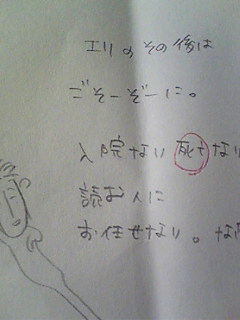 エリのその後は
ごそーぞーに。
入院ない死亡ない
読む人に
お任せなり。な